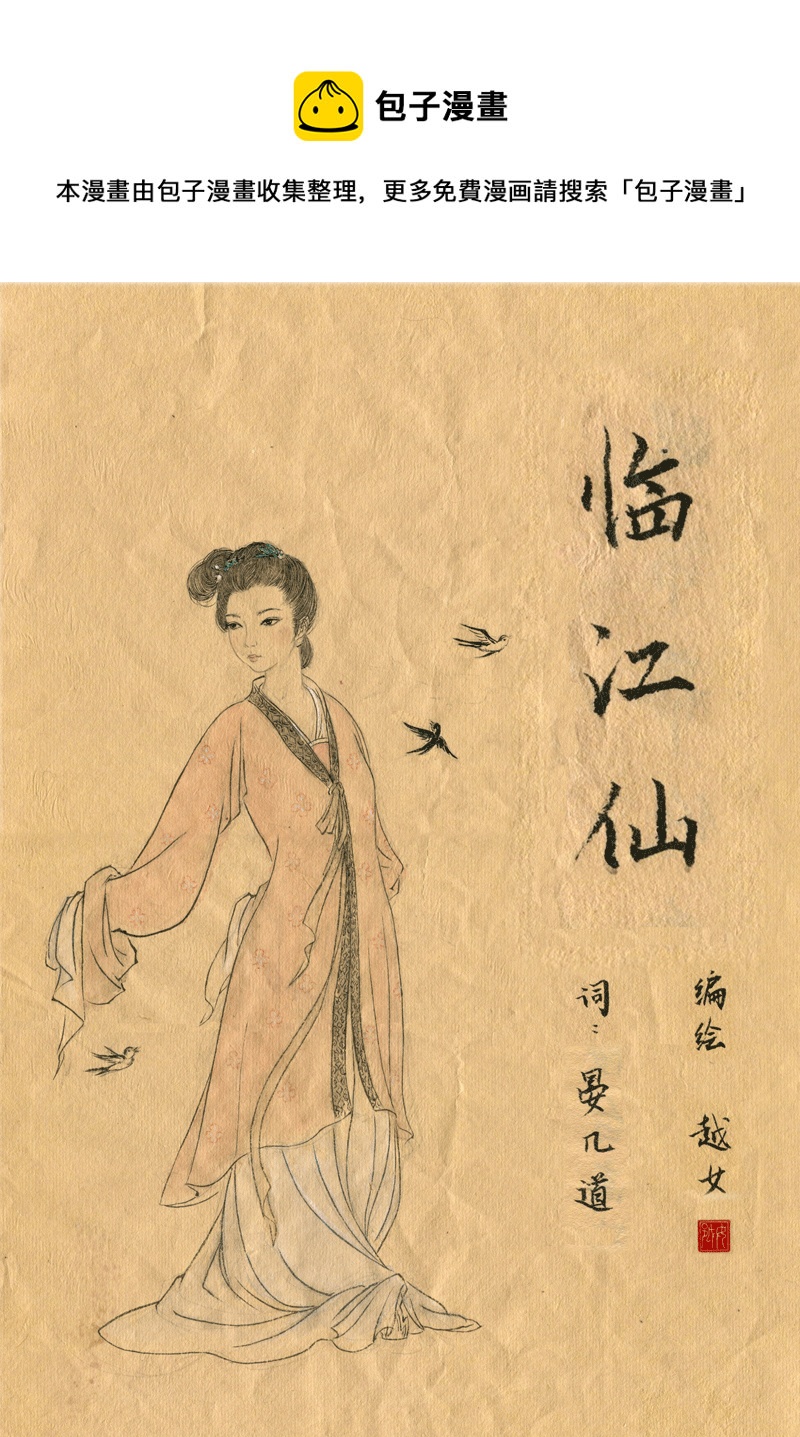 包子漫畫
本漫畫由包子漫畫收集整理，更多免費漫画請搜索「包子漫畫」
临江仙
编绘 越女
词：晏几道